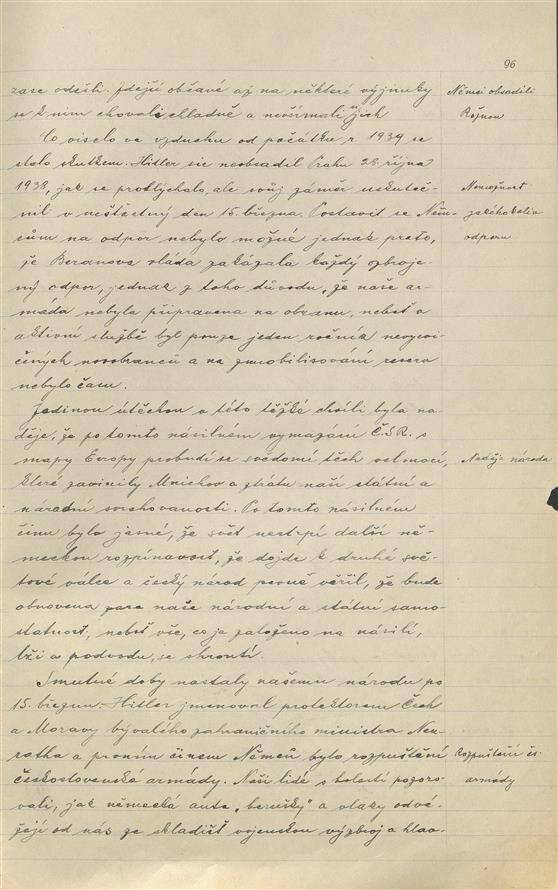 96
zase odešli. Zdejší občané až na některé výjimky
se k nim chovali chladně a nevšímali si jich
Němci obsadili
Rožnov
Co viselo ve vzduchu od počátku r. 1939 se
stalo skutkem. Hitler sic neobsadil Prahu 28. října
1938, jak se proslýchalo, ale svůj záměr uskuteč-
nil v nešťastný den 15. března. Postaviti se Něm-
cům na odpor nebylo možné jednak proto,
Nemožnost
jakéhokoliv
odporu
že Beranova vláda zakázala každý ozbroje-
ný odpor, jednak z toho důvodu, že naše ar-
máda nebyla připravena na obranu, neboť v
aktivní službě byl pouze jeden ročník nevycvi-
čených nováčků a na zmobilisování reserv
nebylo času.
Jedinou útěchou v této těžké chvíli byla na-
děje, že po tomto násilném vymazání Č.S.R. s
mapy Evropy probudí se svědomí těch velmocí,
Naděje národa
které zavinily Mnichov a ztrátu naší státní a
národní svrchovanosti. Po tomto násilném
činu bylo jasné, že svět nestrpí další ně-
meckou rozpínavost, že dojde k druhé svě-
tové válce a český národ pevně věřil, že bude
obnovena zase naše národní a státní samo-
statnost, neboť vše, co je založeno na násilí,
lži a podvodu, se shroutí.
Smutné doby nastaly našemu národu po
15. březnu. Hitler jmenoval protektorem Čech
a Moravy bývalého zahraničního ministra Neu-
ratha a prvním činem Němců bylo rozpuštění
Rozpuštění čs.
armády
československé armády. Naši lidé s bolestí pozoro-
vali, jak německá auta, „berušky" a vlaky odvá-
žejí od nás ze skladišť vojenskou výzbroj a hlav-